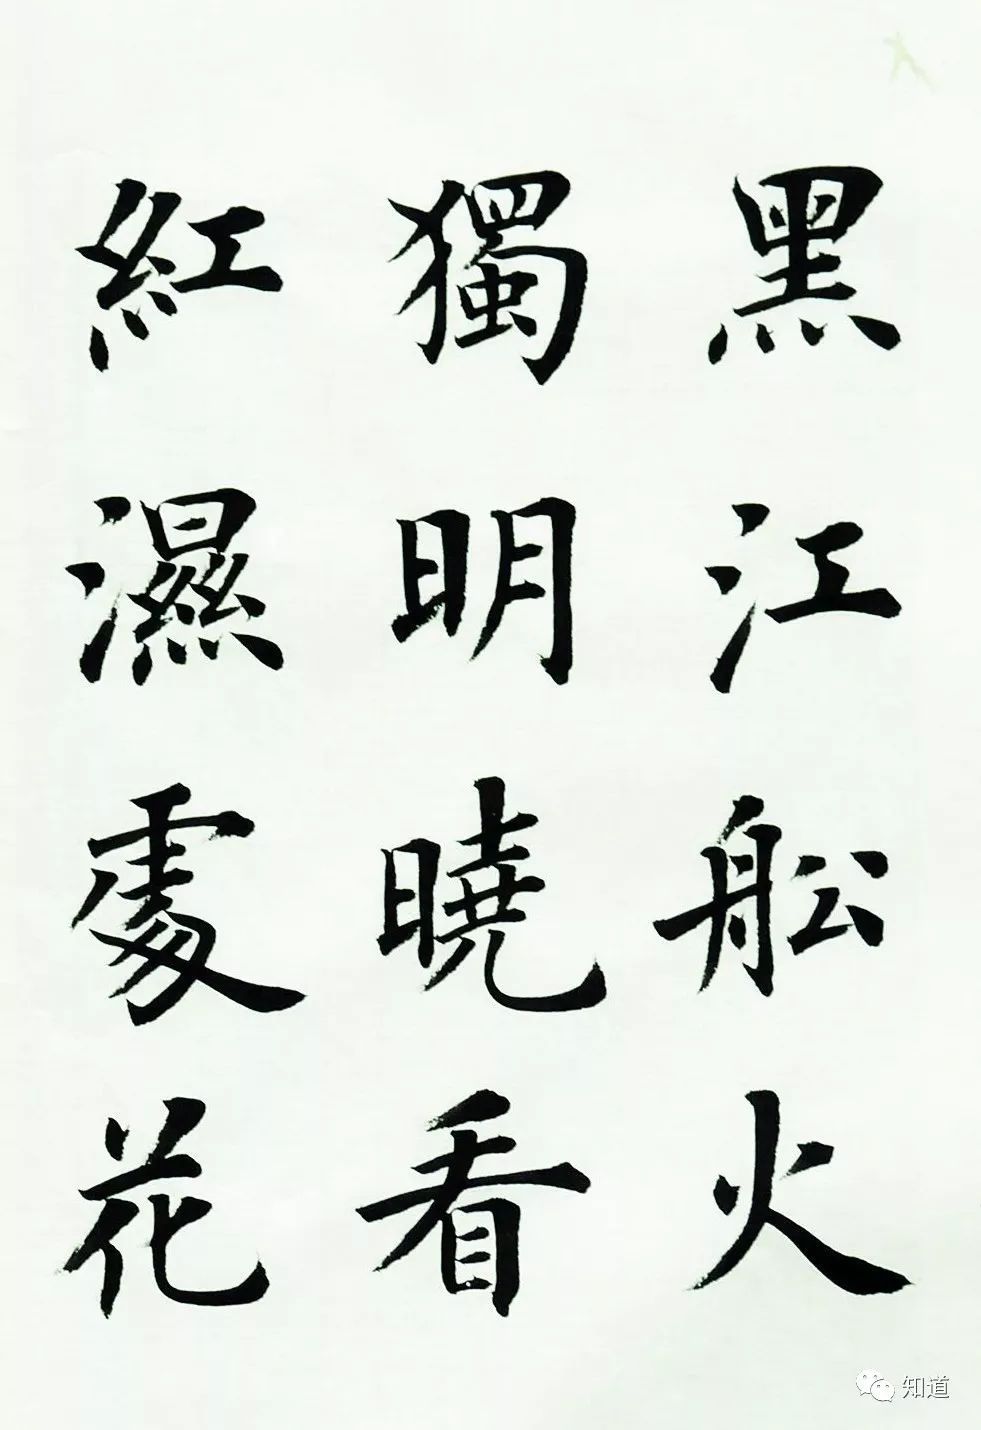 黑江舩火
獨明曉看
紅濕處花
知道